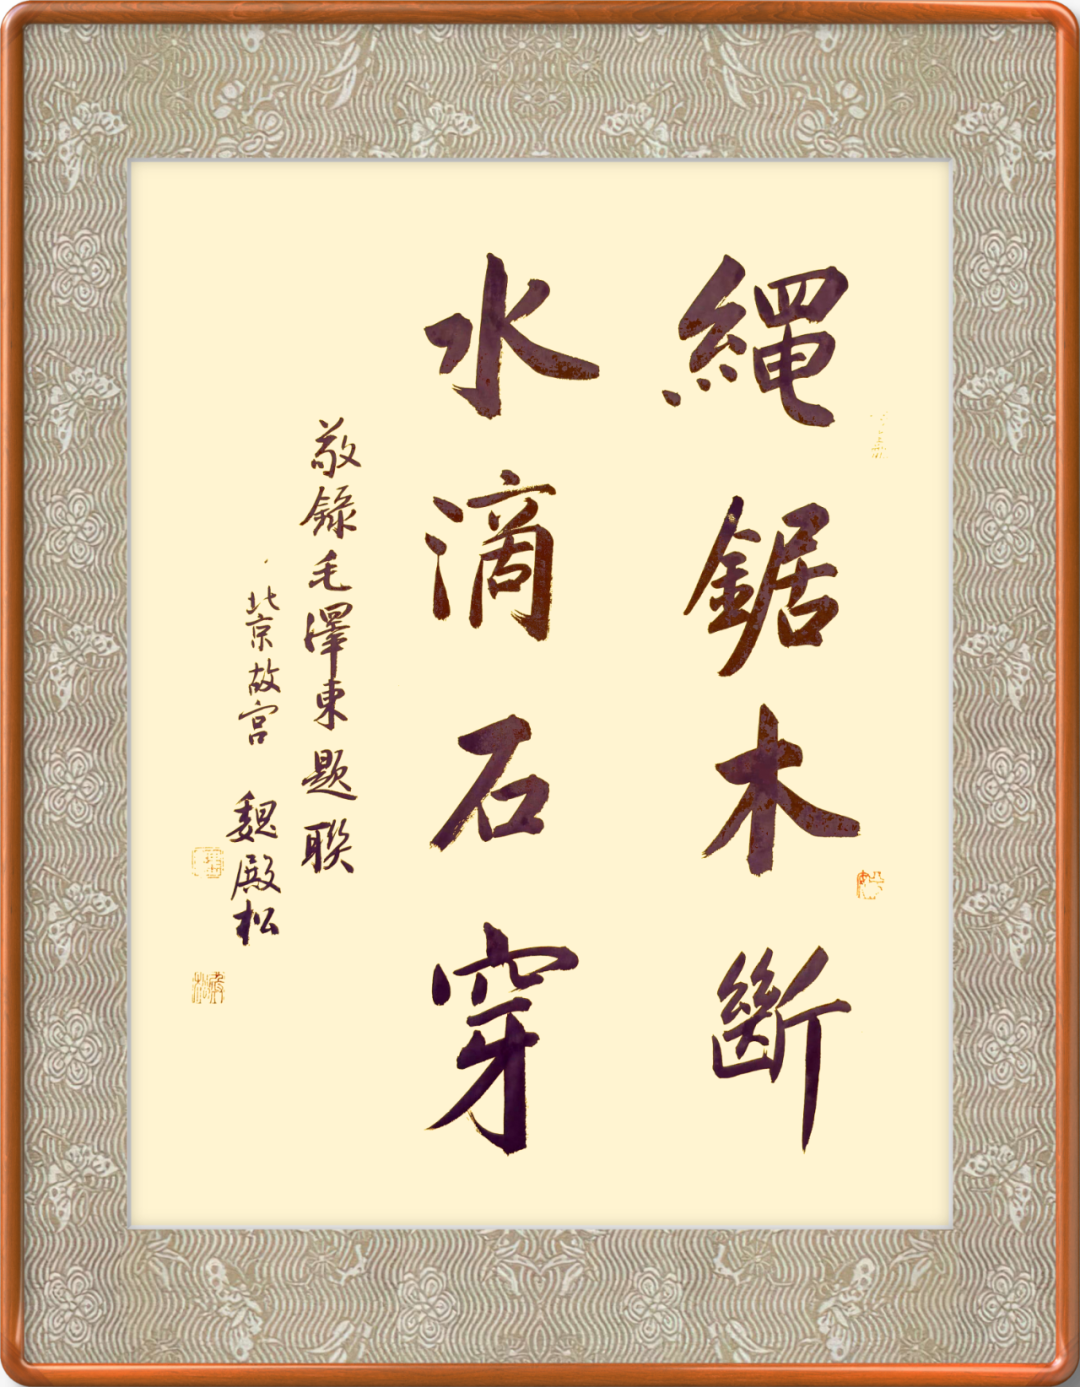 繩鋸木斷
水滴石穿
敬錄毛澤東題聯
北京故宮 魏殿松